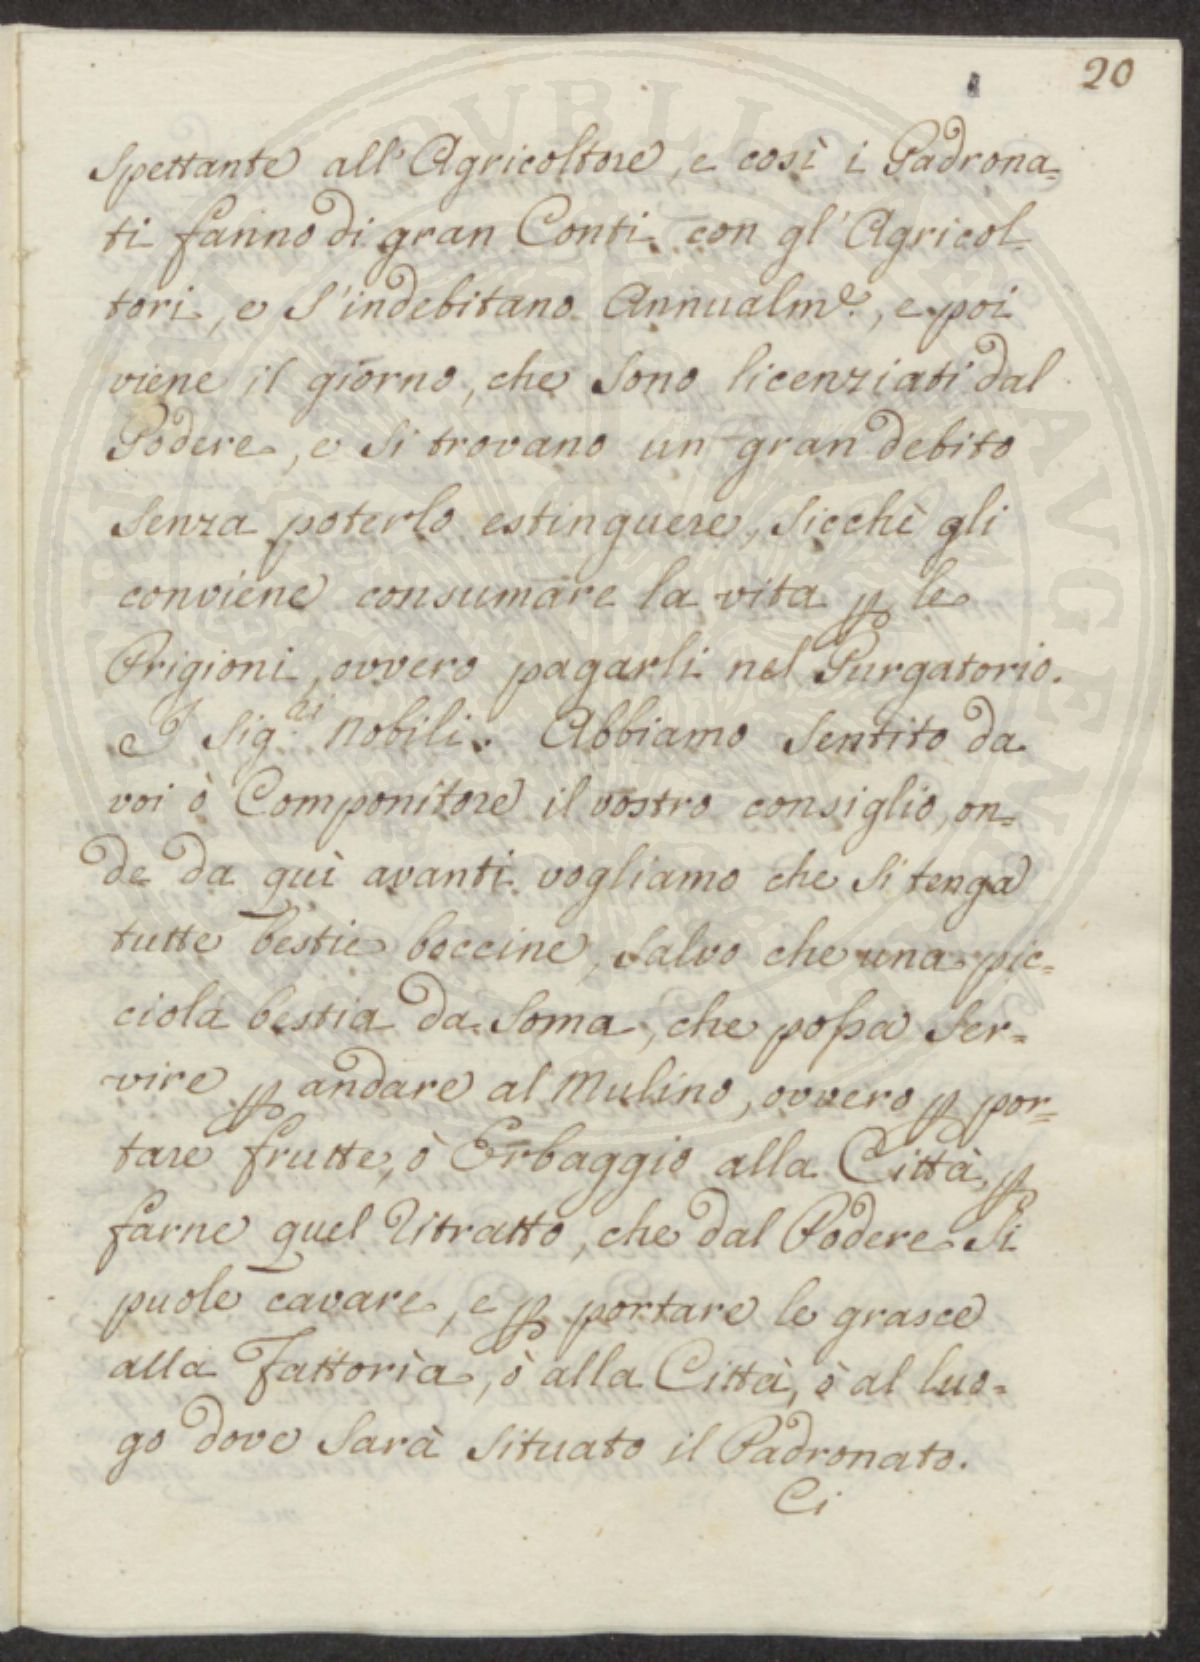 20
spettante all'Agricoltore, e così i Padrona=
ti fanno di gran Conti con gl'Agricol=
tori, e s'indebitano Annualm.e, e poi
viene il giorno, che sono licenziati dal
Podere, e si trovano un gran debito
senza poterlo estinguere, sicchè gli
conviene consumare la vita ꝑ le
Prigioni, ovvero pagarli nel Purgatorio.
I Sig.ri Nobili. Abbiamo sentito da
voi ò Componitore il vostro consiglio, on=
de da quì avanti vogliamo che si tenga
tutte bestie boccine, salvo che una pic=
ciola bestia da soma, che possa ser=
vire ꝑ andare al Mulino, ovvero ꝑ por=
tare frutte, ò Erbaggio alla Città, ꝑ
farne quel ritratto, che dal Podere si
puole cavare, e ꝑ portare le grasce
alla Fattorìa, ò alla Città, ò al luo=
go dove sarà situato il Padronato.
Ci